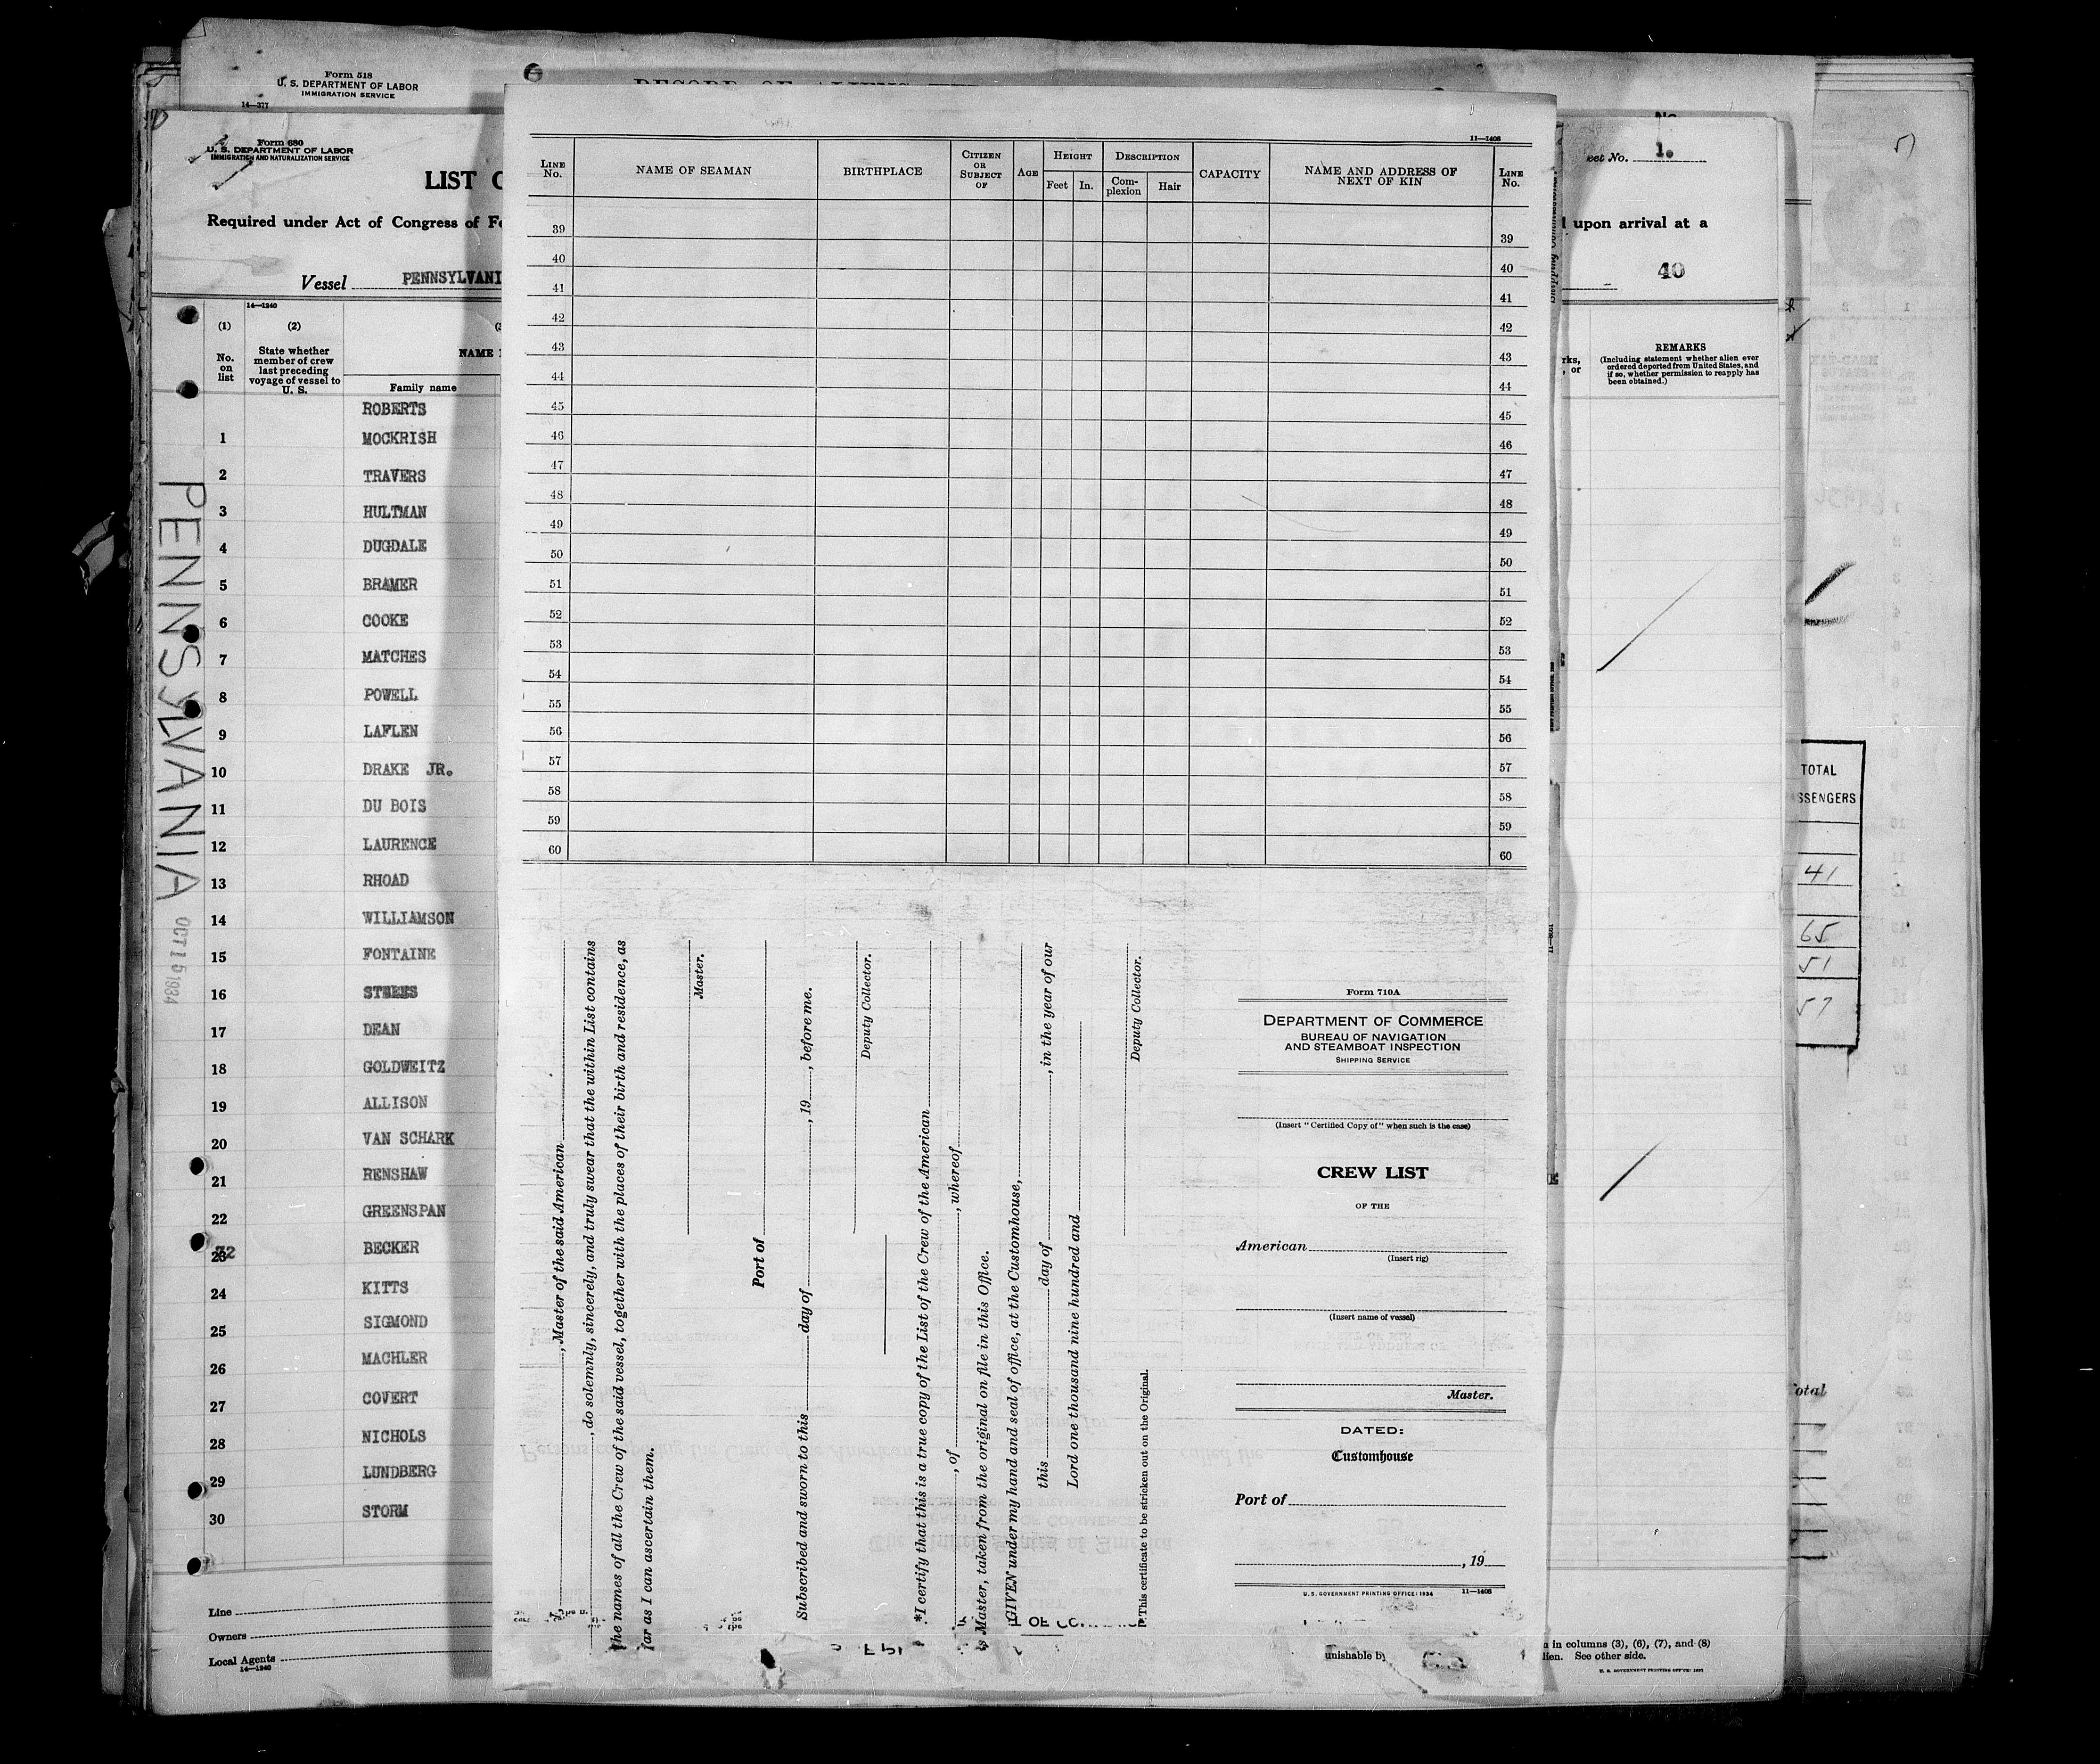 Form 518
U. S. DEPARTMENT OF LABOR
IMMIGRATION SERVICE
14—377
Form 680
U. S. DEPARTMENT OF LABOR
IMMIGRATION AND NATURALIZATION SERVICE
LIST
Required under Act of Congress of
Vessel PENNSYLVANI
14—1240
(1)
(2)
No. on list
State whether member of crew last preceding voyage of vessel to U. S.
NAME
Family name
ROBERTS
1 MOCKRISH
2 TRAVERS
3 HULTMAN
4 DUGDALE
5 BRAMER
6 COOKE
7 MATCHES
8 POWELL
9 LAFLEN
10 DRAKE JR.
11 DU BOIS
12 LAURENCE
13 RHOAD
14 WILLIAMSON
15 FONTAINE
16
17 DEAN
18 GOLDWEITZ
19 ALLISON
20 VAN SCHARK
21 RENSHAW
22 GREENSPAN
23 BECKER
24 KITTS
25 SIGMOND
26 MACHLER
27 COVERT
28 NICHOLS
29 LUNDBERG
30 STORM
Line
Owners
Local Agents
14—1240
PENNSYLVANIA
OCT 1934
11—1408
LINE No.
NAME OF SEAMAN
BIRTHPLACE
CITIZEN OR SUBJECT OF
AGE
HEIGHT
Feet In.
DESCRIPTION
Complexion Hair
CAPACITY
NAME AND ADDRESS OF NEXT OF KIN
LINE No.
39 39
40 40
41 41
42 42
43 43
44 44
45 45
46 46
47 47
48 48
49 49
50 50
51 51
52 52
53 53
54 54
55 55
56 56
57 57
58 58
59 59
60 60
, Master of the said American
, do solemnly, sincerely, and truly swear that the within List contains
the names of all the Crew of the said vessel, together with the places of their birth and residence, as
far as I can ascertain them.
Master.
Port of
Subscribed and sworn to this day of , 19 , before me.
Deputy Collector.
*I certify that this is a true copy of the List of the Crew of the American
, of , whereof
is Master, taken from the original on file in this Office.
GIVEN under my hand and seal of office, at the Customhouse,
this day of , in the year of our
Lord one thousand nine hundred and
Deputy Collector.
This certificate to be stricken out on the Original.
Form 710A
DEPARTMENT OF COMMERCE
BUREAU OF NAVIGATION
AND STEAMBOAT INSPECTION
SHIPPING SERVICE
(Insert "Certified Copy of" when such is the case)
CREW LIST
OF THE
American
(Insert rig)
(Insert name of vessel)
Master.
DATED:
Customhouse
Port of
, 19
U. S. GOVERNMENT PRINTING OFFICE: 1934 11—1408
unishable by
eet No. 1.
upon arrival at a
40
rks,
, or
REMARKS
(Including statement whether alien ever ordered deported from United States, and if so, whether permission to reapply has been obtained.)
in columns (3), (6), (7), and (8)
lien. See other side.
TOTAL
SSENGERS
41
65
51
57
otal